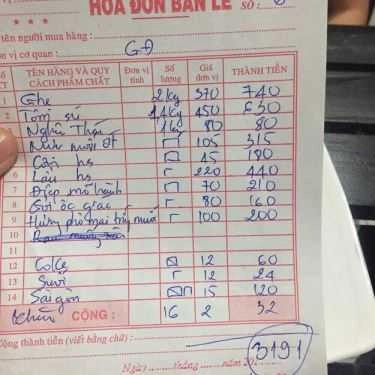 HÓA ĐƠN BÁN LẺ SỐ:
* * *
tên người mua hàng:
ơn vị cơ quan: GĐ
TT TÊN HÀNG VÀ QUY CÁCH PHẨM CHẤT Đơn vị tính Số lượng Giá đơn vị THÀNH TIỀN
1 Ghẹ 2kg 370 740
2 Tôm sú 1,4kg 450 630
Nghêu Thái 1kg 80 80
105 315
Cần hs 45 180
6 Lẩu hs 220 440
7 Điệp mỡ hành 70 210
8 Gỏi ốc giác 80 160
9 phô mai trứng muối 100 200
10
12 Coke 12 60
13 Suối 12 24
14 Sài gòn 15 120
khăn CỘNG: 16 2 32
Cộng thành tiền (viết bằng chữ): 3191
Ngày tháng năm 20